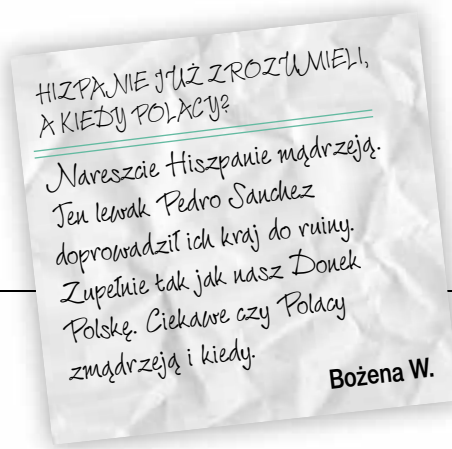 HIZPANIE JUŻ ZROZUMIELI,
A KIEDY POLACY?
Nareszcie Hiszpanie mądrzeją.
Ten lewak Pedro Sanchez
doprowadził ich kraj do ruiny.
Zupełnie tak jak nasz Donek
Polskę. Ciekawe czy Polacy
zmądrzeją i kiedy.
Bożena W.